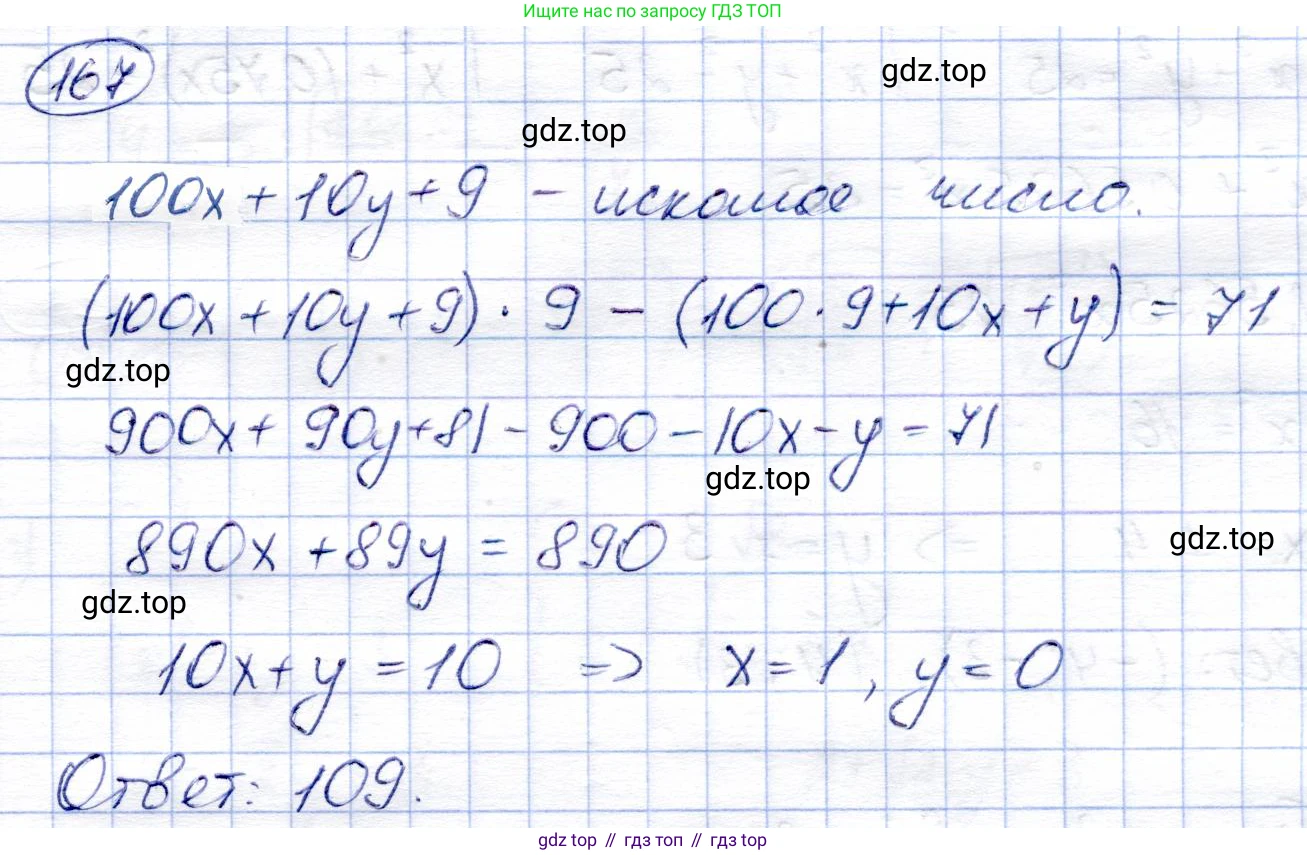 Ищите нас по запросу ГДЗ ТОП
167
gdz.top
gdz.top
100x + 10y + 9 - искомое число.
(100x + 10y + 9) · 9 - (100 · 9 + 10x + y) = 71
gdz.top
900x + 90y + 81 - 900 - 10x - y = 71
gdz.top
890x + 89y = 890
gdz.top
gdz.top
10x + y = 10 => x = 1, y = 0
Ответ: 109.
gdz top // гдз топ // гдз.top